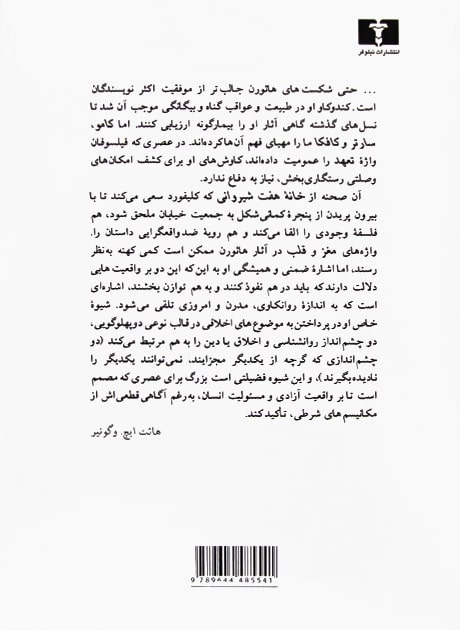 انتشارات نیلوفر
... حتی شکست‌های هاثورن جالب‌تر از موفقیت اکثر نویسندگان
است. کندوکاو او در طبیعت و عواقب گناه و بیگانگی موجب آن شد تا
نسل‌های گذشته گاهی آثار او را بیمارگونه ارزیابی کنند. اما کامو،
سارتر و کافکا ما را مهیای فهم آن‌ها کرده‌اند. در عصری که فیلسوفان
واژهٔ تعهد را عمومیت داده‌اند، کاوش‌های او برای کشف امکان‌های
وصلتی رستگاری‌بخش، نیاز به دفاع ندارد.
آن صحنه از خانهٔ هفت شیروانی که کلیفورد سعی می‌کند تا با
بیرون پریدن از پنجرهٔ کمانی‌شکل به جمعیت خیابان ملحق شود، هم
فلسفهٔ وجودی را القا می‌کند و هم رویهٔ ضدواقعگرایی داستان را.
واژه‌های مغز و قلب در آثار هاثورن ممکن است کمی کهنه به‌نظر
رسند، اما اشارهٔ ضمنی و همیشگی او به این‌که این دو بر واقعیت‌هایی
دلالت دارند که باید در هم نفوذ کنند و به هم توازن بخشند، اشاره‌ای
است که به اندازهٔ روانکاوی، مدرن و امروزی تلقی می‌شود. شیوهٔ
خاص او در پرداختن به موضوع‌های اخلاقی در قالب نوعی دوپهلوگویی،
دو چشم‌انداز روانشناسی و اخلاق یا دین را به هم مرتبط می‌کند (دو
چشم‌اندازی که گرچه از یکدیگر مجزایند، نمی‌توانند یکدیگر را
نادیده بگیرند)، و این شیوه فضیلتی است بزرگ برای عصری که مصمم
است تا بر واقعیت آزادی و مسئولیت انسان، به‌رغم آگاهی قطعی‌اش از
مکانیسم‌های شرطی، تأکید کند.
هائت ایچ. وگونیر
9 789644 485541